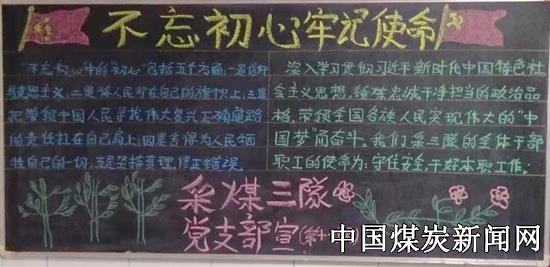 不忘初心 牢记使命
"不忘初心"中的"初心"包括五个方面:一是信仰
马克思主义,二是将人民举在自己的旗帜上,三是
把带领中国人民寻找伟大复兴正确道路
的责任扛在自己肩上;四是舍得为人民牺
牲自己的一切,五是坚持真理,修正错误。
深入学习贯彻习近平新时代中国特色社
会主义思想,锤炼忠诚干净担当的政治品
格,带领全国各族人民实现伟大的"中
国梦"而奋斗。我们采三队的全体干部
职工的使命为:守住安全,干好本职工作。
采煤三隊
党支部宣
中国煤炭新闻网